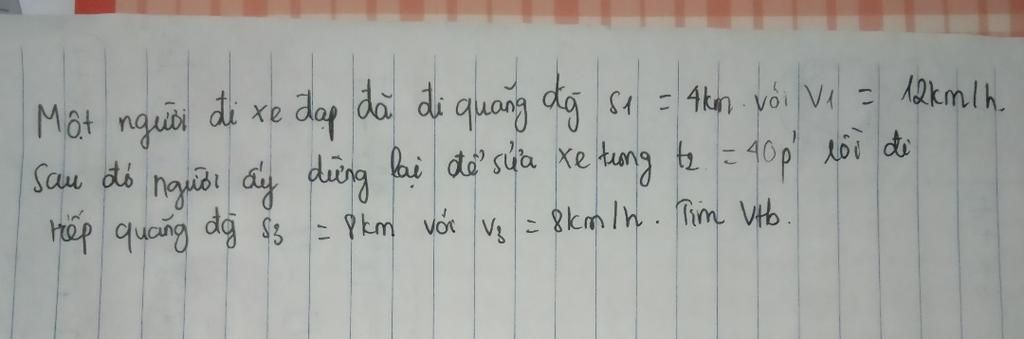 Một người đi xe đạp đã đi quãng đg S1 = 4km với V1 = 12km/h.
Sau đó người ấy dừng lại để sửa xe trong t2 = 40p' rồi đi
tiếp quãng đg S3 = 8km với V3 = 8km/h. Tìm Vtb.